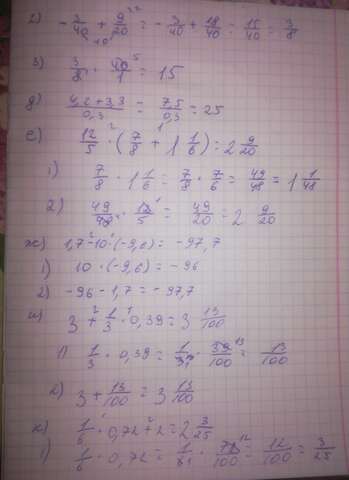 2) -3/40 + 9/20 = -3/40 + 18/40 = 15/40 = 3/8
3) 3/8 · 40/1 = 15
д) (4,2+3,3)/0,3 = 7,5/0,3 = 25
е) 12/5 · (7/8 + 1 1/6) = 2 9/20
1) 7/8 · 1 1/6 = 7/8 · 7/6 = 49/48 = 1 1/48
2) 49/48 · 12/5 = 49/20 = 2 9/20
ж) 1,7 - 10 · (-9,6) = -97,7
1) 10 · (-9,6) = -96
2) -96 - 1,7 = -97,7
и) 3 + 1/3 · 0,39 = 3 13/100
1) 1/3 · 0,39 = 1/3 · 39/100 = 13/100
2) 3 + 13/100 = 3 13/100
к) 1/6 · 0,72 + 2 = 2 3/25
1) 1/6 · 0,72 = 1/6 · 72/100 = 12/100 = 3/25